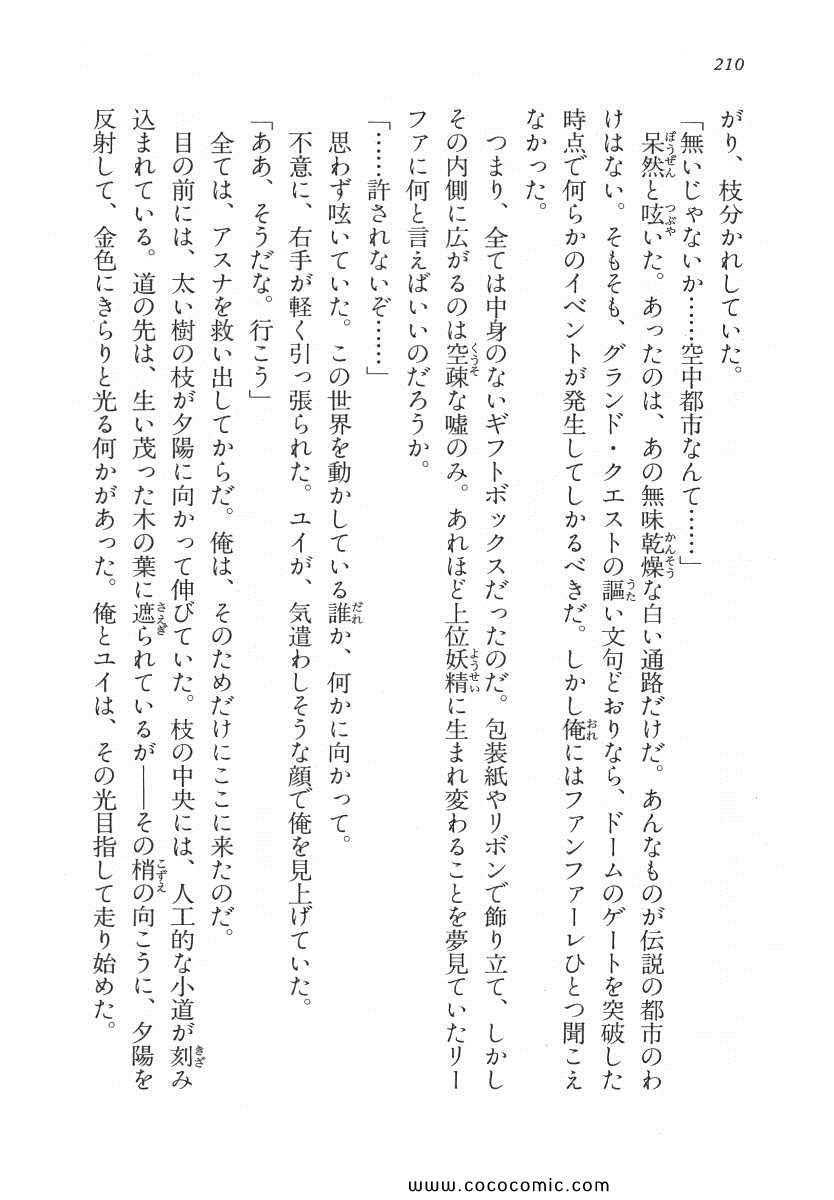 210
がり、枝分かれしていた。
「無いじゃないか……空中都市なんて……」
呆然と呟いた。あったのは、あの無味乾燥な白い通路だけだ。あんなものが伝説の都市のわ
けはない。そもそも、グランド・クエストの謳い文句どおりなら、ドームのゲートを突破した
時点で何らかのイベントが発生してしかるべきだ。しかし俺にはファンファーレひとつ聞こえ
なかった。
つまり、全ては中身のないギフトボックスだったのだ。包装紙やリボンで飾り立て、しかし
その内側に広がるのは空疎な嘘のみ。あれほど上位妖精に生まれ変わることを夢見ていたリー
ファに何と言えばいいのだろうか。
「……許されないぞ……」
思わず呟いていた。この世界を動かしている誰か、何かに向かって。
不意に、右手が軽く引っ張られた。ユイが、気遣わしそうな顔で俺を見上げていた。
「ああ、そうだな。行こう」
全ては、アスナを救い出してからだ。俺は、そのためだけにここに来たのだ。
目の前には、太い樹の枝が夕陽に向かって伸びていた。枝の中央には、人工的な小道が刻み
込まれている。道の先は、生い茂った木の葉に遮られているが――その梢の向こうに、夕陽を
反射して、金色にきらりと光る何かがあった。俺とユイは、その光目指して走り始めた。
www.cococomic.com/